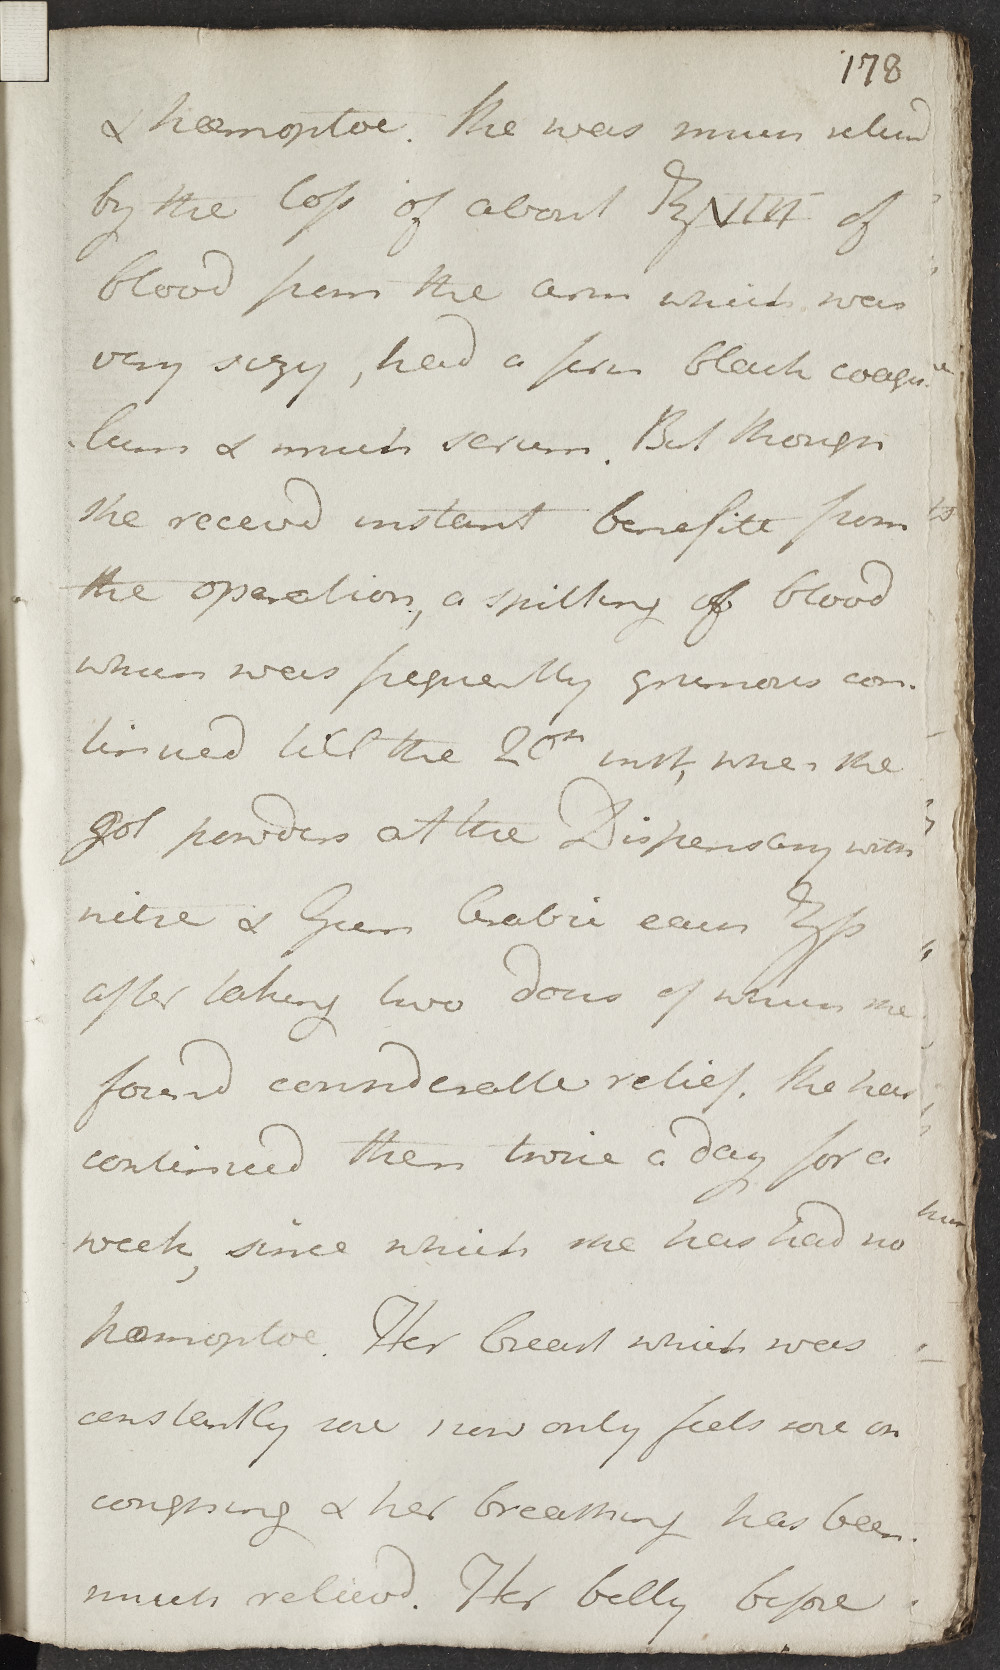 178
& hæmoptoe. She was much relievd
by the loss of about ℥VIII of
blood from the arm which was
very sizy, had a firm black coagu-
lum & much serum. But though
she receivd instant benefitt from
the operation, a spitting of blood
which was frequently grumous con-
tinued till the 20th inst, when she
got powders at the Dispensary with
nitre & Gum Arabic each ʒss
after taking two doses of which she
found considerable relief. She has
continued them twice a day for a
week, since which she has had no
hæmoptoe. Her breast which was
constantly sore now only feels sore on
coughing & her breathing has been
much relievd. Her belly before